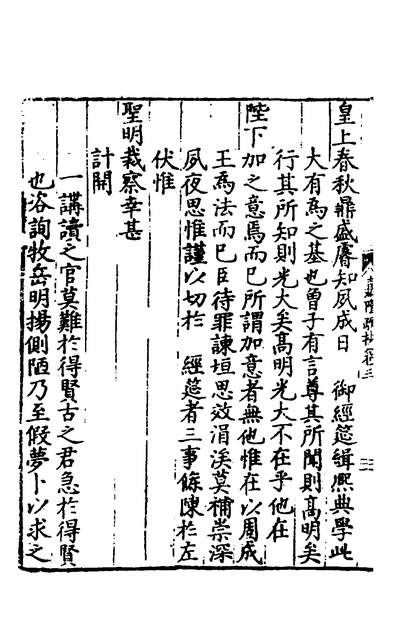 皇上春秋鼎盛睿知夙成日　御經筵緝熙典學此
大有爲之基也曾子有言尊其所聞則高明矣
行其所知則光大矣高明光大不在乎他在
陛下加之意焉而已所謂加意者無他惟在以周成
王爲法而已臣待罪諫垣思效涓溪莫補崇深
夙夜思惟謹以切於　經筵者三事條陳於左
伏惟
聖明裁察幸甚
計開
一講讀之官莫難於得賢古之君急於得賢
也咨詢牧岳明揚側陋乃至假夢卜以求之